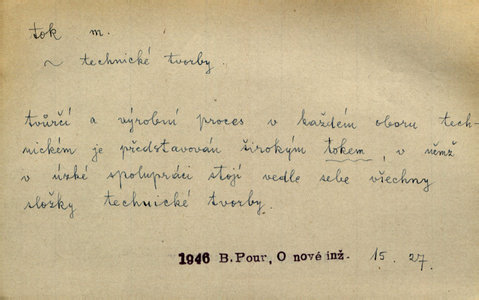 tok m.
~ technické tvorby.
tvůrčí a výrobní proces v každém oboru tech-
nickém je představován širokým tokem, v němž
v úzké spolupráci stojí vedle sebe všechny
složky technické tvorby.
1946 B. Pour, O nové inž. 15. 27.